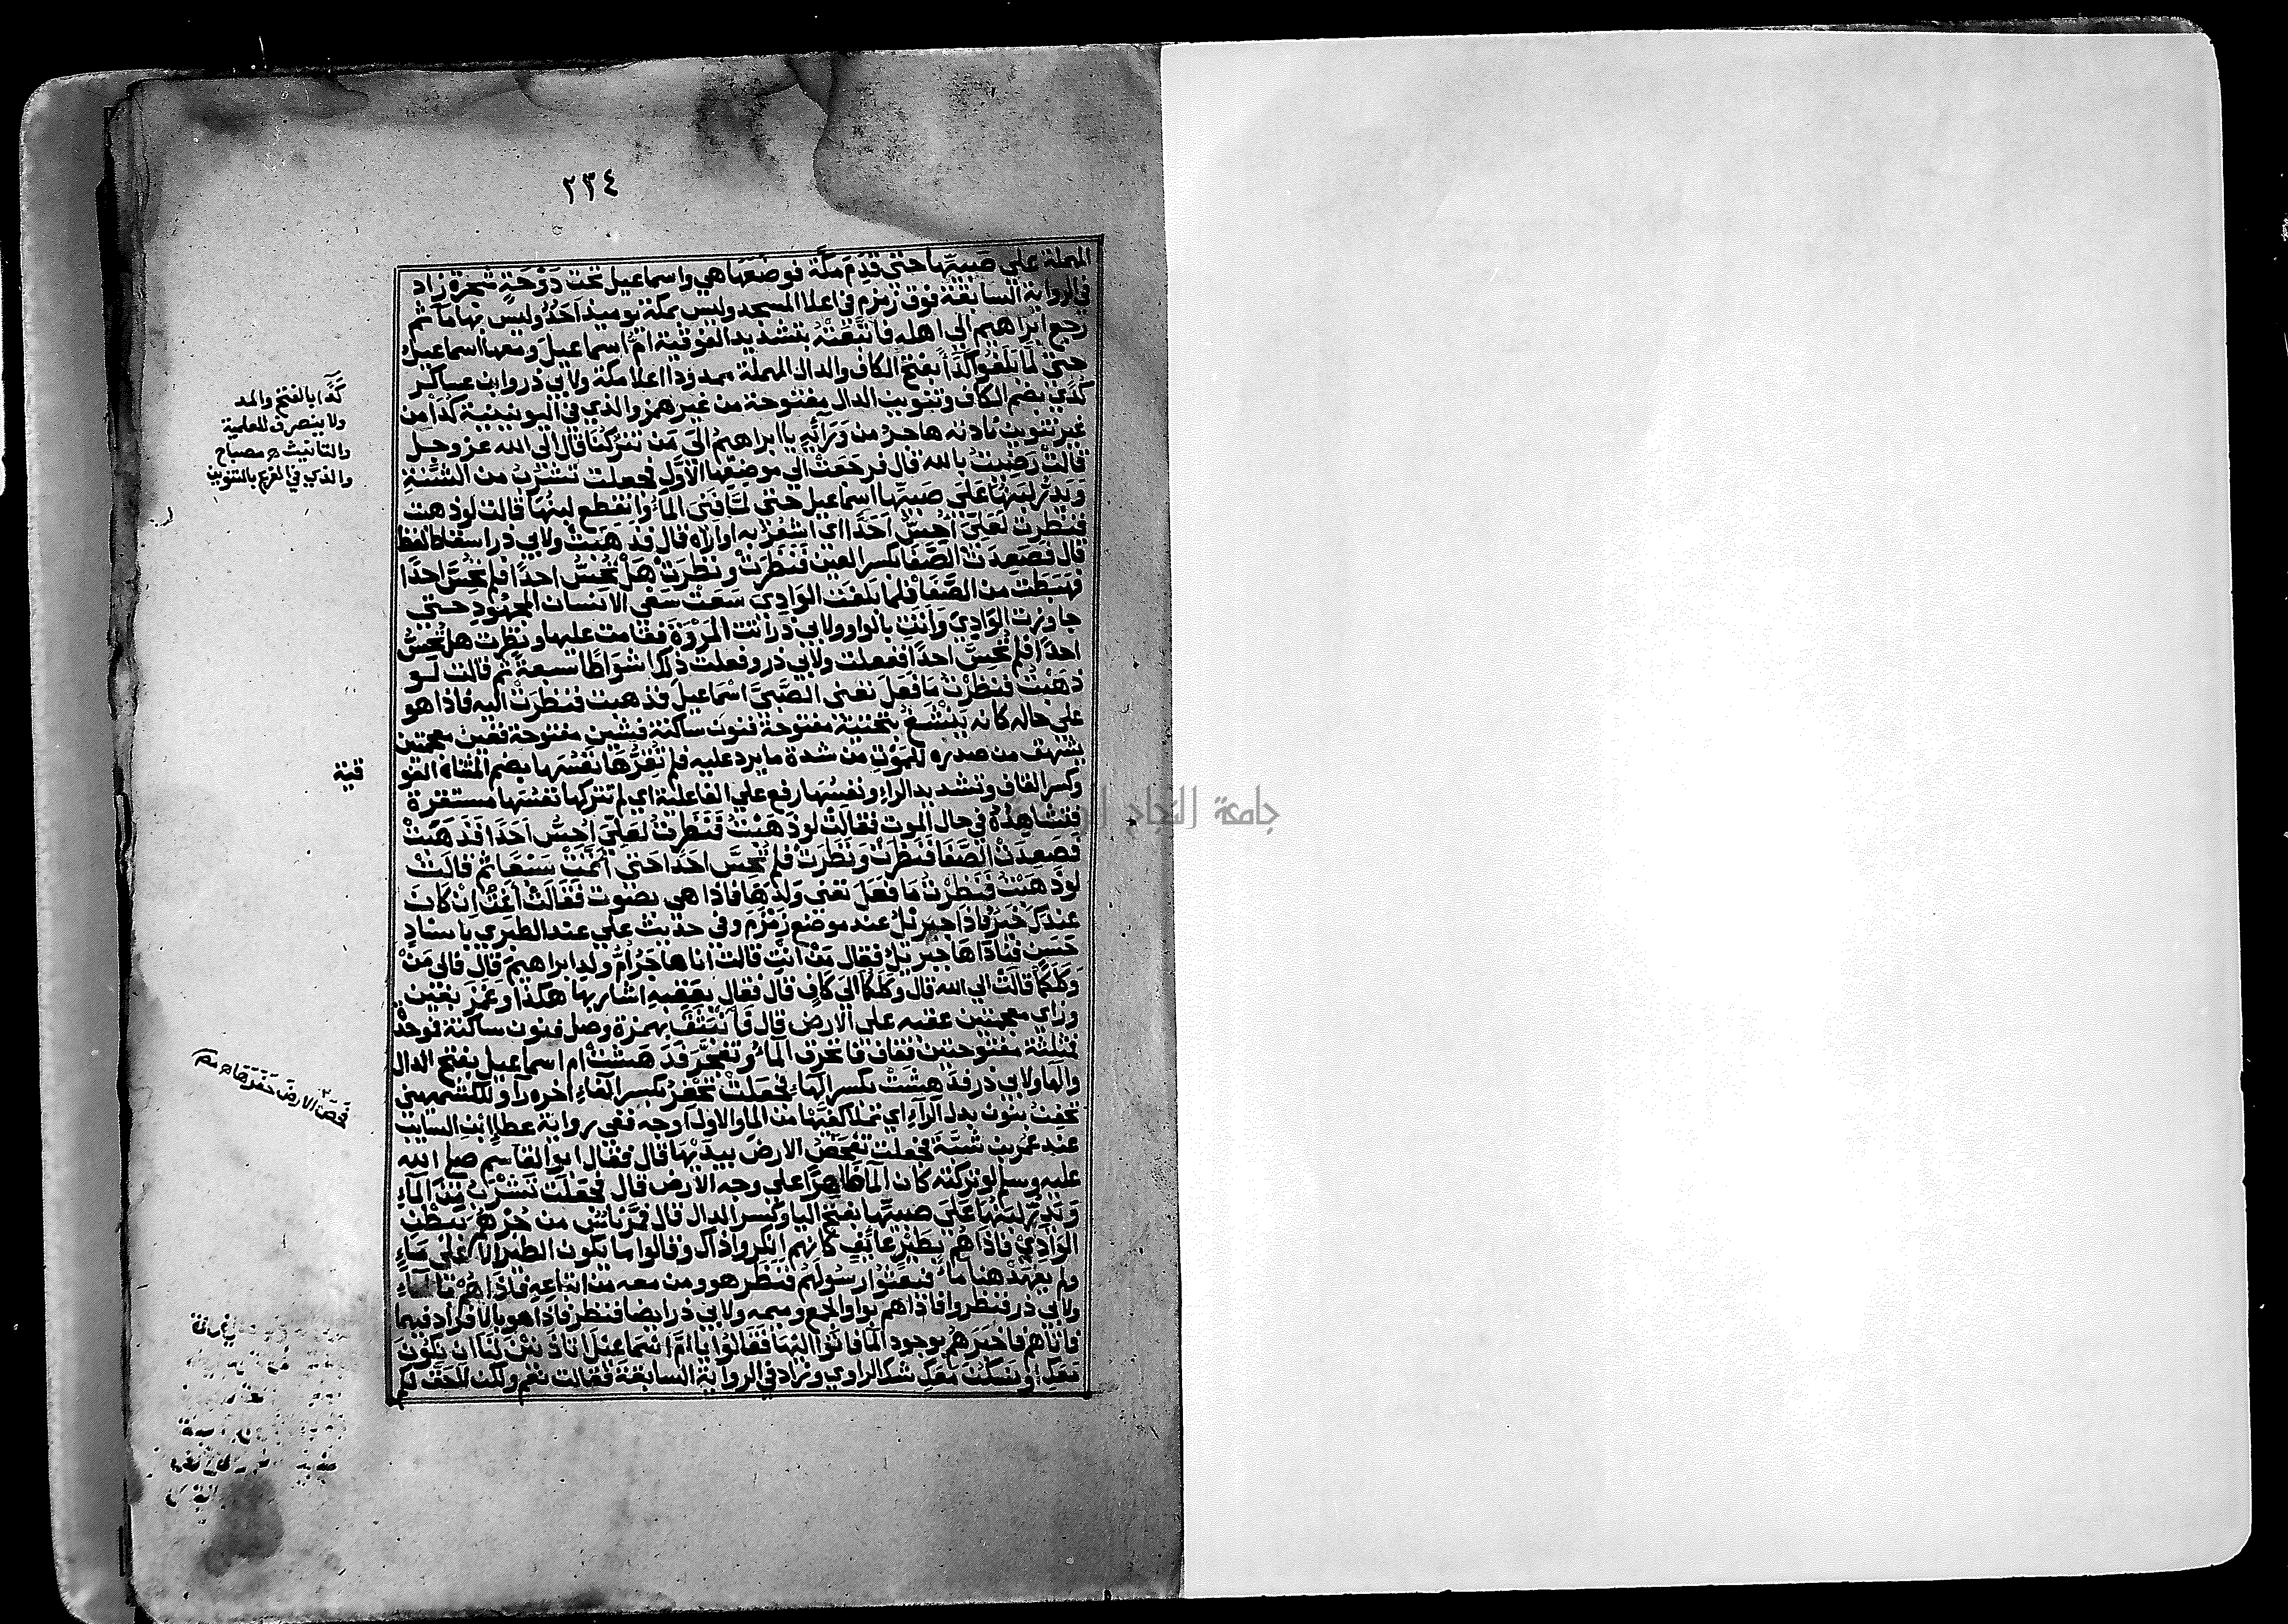 ٢٣٤
المهملة علي صبيها حتى قدم مكة فوضعها هي واسماعيل تحت دَوْحَةٍ شجرة زاد
في الرواية السابقة فوق زمزم في اعلا المسجد وليس بمكة يوميذ احَدٌ وليس بها مآ ثم
رجع ابراهيم الي اهله فاتَّبَعَتْهُ بتشديد الفوقية امُّ اسماعيلَ ومعها اسماعيل
حتى لمَّا بَلَغُوا كَدَآً بفتح الكاف والدال المهملة ممدودا اعلا مكة ولابي ذر وابن عساكر
كُدًي بضم الكاف وتنوين الدال مفتوحة من غير همز والذي في اليونينية كُدَا من
غير تنوين نادته هاجر من وَرَآئِهِ يا ابراهيمُ الَي مَنْ تتركنا قال الى الله عز وجل
قالتْ رَضِيتُ بالله قال فرجَعَتْ الي موضعها الاوَّلِ فجعلت تَشْرَبُ من الشَّنَّةِ
وَيَدِرُّ لبَنُهَا عَلَى صَبِيِّهَا اسماعيل حتى لمَّا فَنِيَ المآءُ وانقطع لبنُهَا قالت لو ذهبت
فنظرت لَعَلِّي اُحِسُّ اَحَدًا اي اشعرُ به او اراه قال فذهَبَتْ ولابي ذر اسقاط لفظ
قال فصَعِدَتْ الصَّفَا بكسر العين فَنَظَرَتْ ونَظَرَتْ هَلْ تُحِسُّ احدًا فلم تُحِسَّ احدًا
فهَبَطت من الصَّفَا فلما بَلَغَت الوَادِيَ سَعَتْ سَعْيَ الانسان المجهود حتى
جاوزت الوَادِيَ وَاَتَت بالواو ولابي ذر اتت المَرْوَةَ فقامت عليها ونظرت هل تُحِسُّ
احدًا فلم تُحِسَّ احدًا ففعلت ولابي ذر وفعلت ذلك اشوَاطًا سبعة ثم قالت لو
ذهَبْتُ فنظرْتُ مَا فَعَلَ تعنى الصَّبيَّ اسْماعيل فذهبت فنظرَتْ اليه فاذا هو
على حاله كانه يَنْشَغُ بتحتية مفتوحة فنون ساكنة فشين مفتوحة فغين معجمتين
يشهق من صدره للمَوْتِ من شدة ما يرد عليه فلم تُقِرَّهَا نفسُها بضم المثناة الفو
قية
وكسر القاف وتشديد الراء ونفسُها رفع علي الفاعلية اي لم تتركها نفسُها مستقرة
فتشاهِدُهُ في حال الموت فقالَتْ لو ذهبْتُ فَنَظَرتُ لعَلِّيَ اُحِسُّ اَحَدًا فَذَهَبَتْ
فصَعِدَتْ الصَّفَا فنظرَتْ وَنَظَرَتْ فلم تُحِسَّ احدًا حَتى اتَمَّتْ سَبْعًا ثم قالَتْ
لو ذهَبْتُ فنَظَرْتُ مَا فعَلَ تعنى وَلَدَهَا فاذا هي بصَوت فقَالَتْ اَغِثْ اِنْ كَانَ
عندَكَ خَيْرٌ فاذا جبريلُ عند موضع زَمْزَم وفي حديث علي عند الطبري باسناد
حَسَن فنادَاها جبريلُ فقال مَنْ انتِ قالت انا هاجَرُ اُمُّ ولد ابراهيمَ قال فالي مَنْ
وَكَلَكُمَا قالَتْ الي الله قال وَكَلَكُمَا الَى كَافٍ قال فقال بِعَقِبِهِ اشار بها هكذا وغمَزَ بغين
وزاي معجمتين عقبه علي الارض قال فَانْبَثَقَ بهمزة وصل فنون ساكنة فموحدة
فمثلثة مفتوحتين فقاف فانخرق المآءُ وتفجَّرَ فَدَهَشَتْ ام اسماعيل بفتح الدال
والها ولابي ذر فدَهِشَتْ بكسر الهآءِ فجعَلَتْ تَحْفِرُ بكسر الفاء اخره رآ وللكشميهني
تحفن بنون بدل الرآءِ اي تملا كفيها من الما والاول اوجه ففي رواية عطا ابن السايب
عند عمر بن شبة فجعلت تفحَصُ الارضَ بيديها قال فقال ابو القاسم صلى الله
عليه وسلم لو تركته كان المآ ظاهرًا علي وجه الارض قال فجَعَلَتْ تَشْرَبُ مِنَ المآءِ
وَيَدِرُّ لَبَنُهَا عَلَي صبيِّها بفتح اليا وكسر الدال قال فمَرَّ ناسٌ من جُرْهُم ببَطْنِ
الوَادِيْ فاذا هم بِطَيْرٍ عائِفٍ كانهم انكروا ذاك وقالوا ما يكون الطير الا عَلَى مَاءٍ
ولم يعهَدْ هنا ماء فبعثُوا رسُولَهُم فنظَر هو ومن معه من اتباعِهِ فاذا هُمْ بالمآءِ
ولابي ذر فنظروا فاذا هم بواو الجمع وميمه ولابي ذر ايضا فنظر فاذا هو بالافراد فيهما
فاتاهم فاخبَرَهُم بوجود المآ فاتَوْا اليها فقَالُوا يا امَّ اسْماعيل اتاذنينَ لَنَا ان نكُونَ
مَعَكِ او نَسْكُنَ مَعَكِ شك الراوي وزاد في الرواية السابقة فقالت نعم ولكن لا حَقَّ لكم
كَدَآءَ بالفتح والمد
ولا ينصرف للعلمية
والتانيث ه مصباح
والذي في الفرع بالتنوين
فَحَصَ الارضَ حَفَرَهَا ه
جامعة النجاح